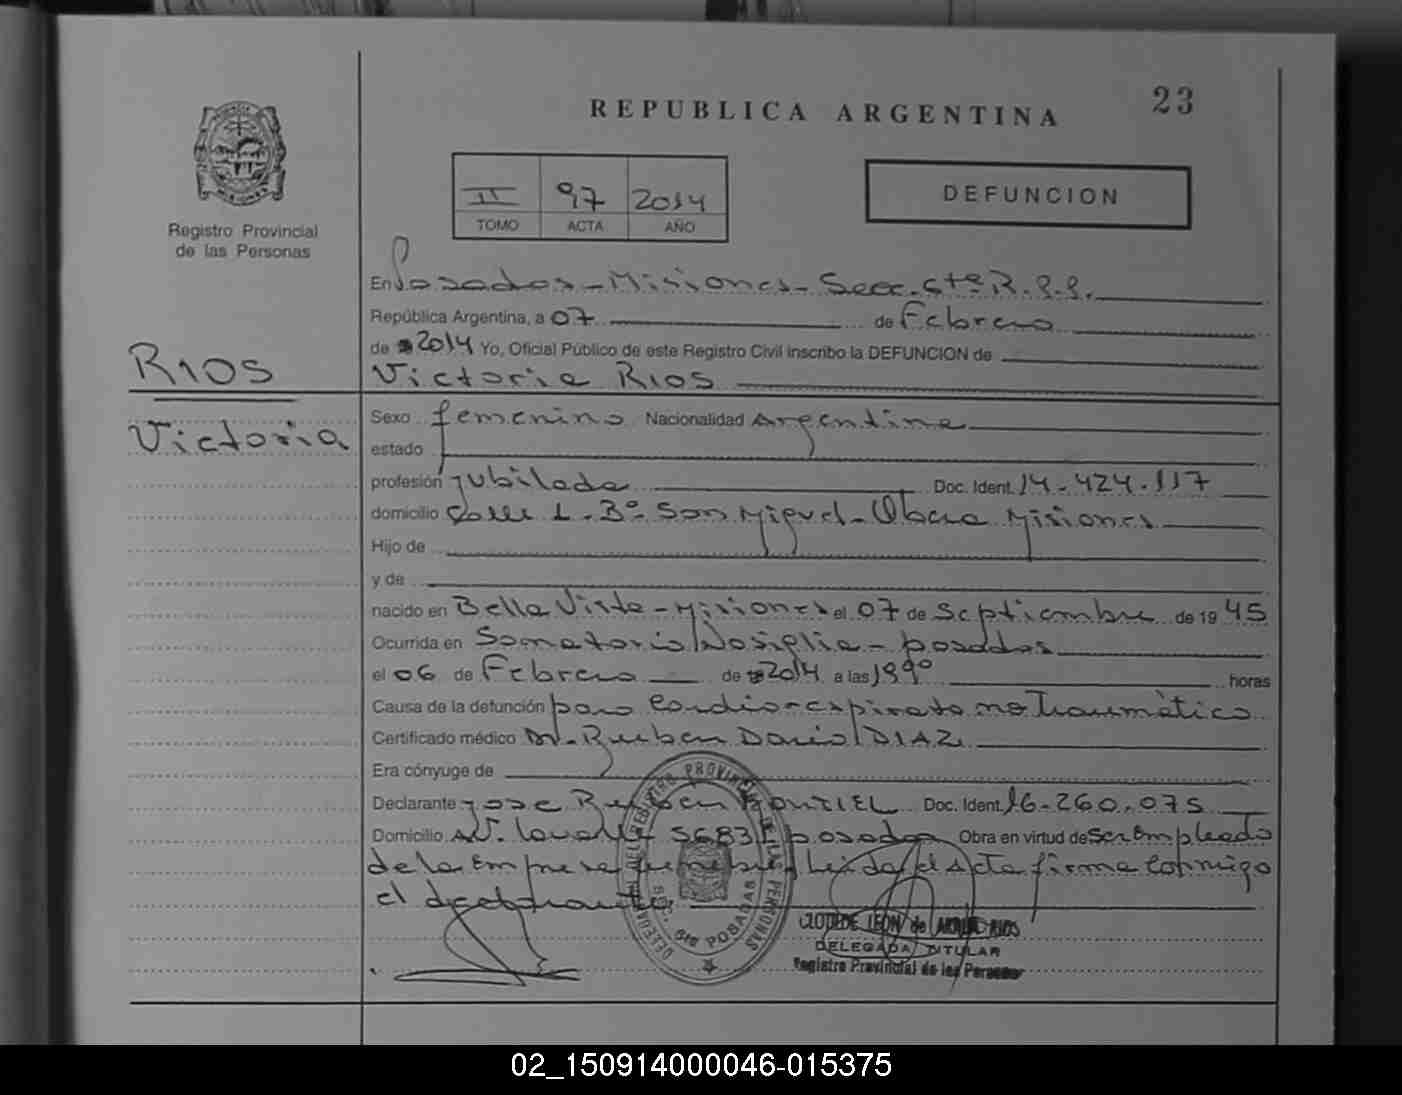 23
REPUBLICA ARGENTINA
II 97 2014
TOMO ACTA AÑO
DEFUNCION
Registro Provincial
de las Personas
RIOS
Victoria
En Posadas - Misiones - Secc. 6ta R.P.P.
República Argentina, a 07 de Febrero
de 2014 Yo, Oficial Público de este Registro Civil inscribo la DEFUNCION de
Victoria RIOS
Sexo femenino Nacionalidad Argentina
estado
profesión jubilada Doc. Ident. 14-424.117
domicilio Calle 1. Bº San Miguel - Obera Misiones
Hijo de
y de
nacido en Bella Vista - Misiones el 07 de Septiembre de 1945
Ocurrida en Sanatorio Nosiglia - posadas
el 06 de Febrero de 2014 a las horas
Causa de la defunción paro cardiorespirato no Traumático
Certificado médico Dr. Ruben Dario DIAZ
Era cónyuge de
Declarante Jose Ruben Doc. Ident. 16-260.075
Domicilio Av. Lavalle 5683 posadas Obra en virtud de ser Empleado
de la Empresa funebre, Leida el Acta firma conmigo
el declarante
DELEGACION DEL REGISTRO PROVINCIAL DE LAS PERSONAS
SEC. 6ta POSADAS
CLOTILDE LEON de RIOS
DELEGADA TITULAR
Registro Provincial de las Personas
02_150914000046-015375